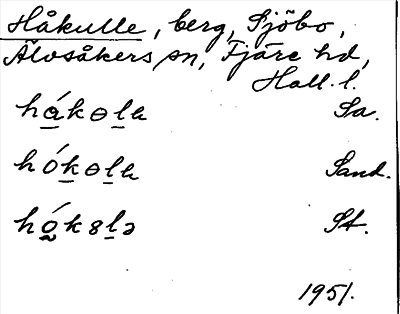 Håkulle, berg, Sjöbo,
Älvsåkers sn, Fjäre hd,
Hall. l.
há̲kɵl̲a Sa.
hók̲ɵl̲a Sand.
hó̰k8l̲ə St.
1951.